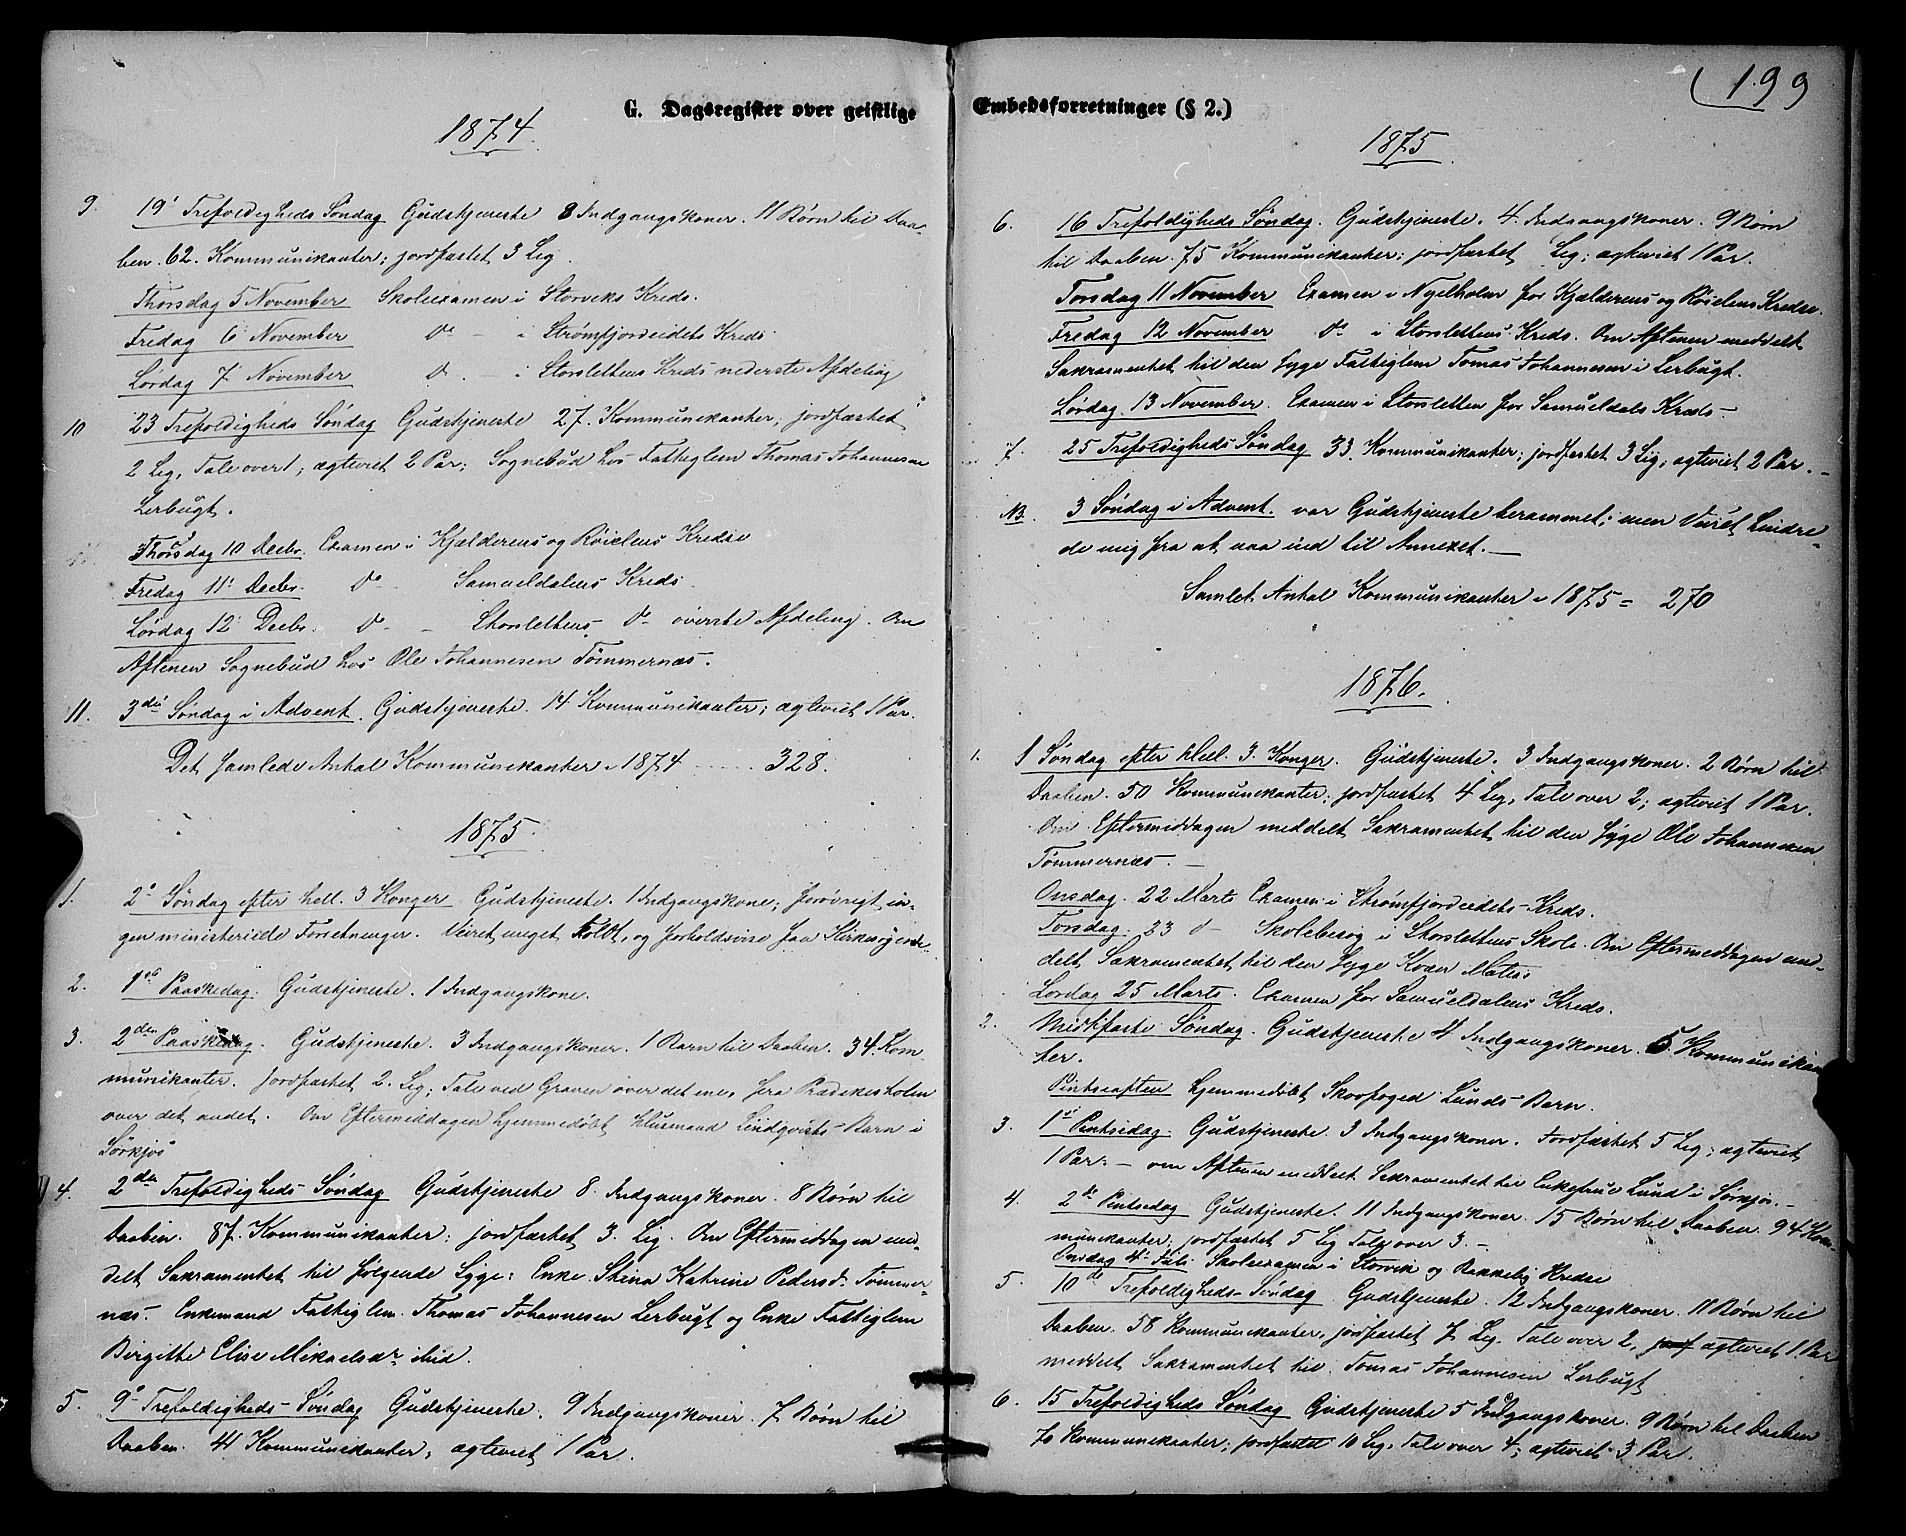 G. Dagsregister over geistlige
1874.
9. 19' Trefoldigheds Søndag Gudstjeneste 8 Indgangskoner. 11 Børn til Daa-
ben. 62. Kommunikanter; jordfæstet 3 Lig.
Thorsdag 5 November Skoleexamen i Storviks Kreds.
Fredag 6' November do - i Strømfjordeidets Kreds
Lørdag 7' November do - i Storslettens Kreds nederste Afdeling
10 23 Trefoldigheds Søndag Gudstjeneste 27. Kommunikanter; jordfæstet
2 Lig, Tale over 1; ægteviet 2 Par; Sognebud hos Fattiglem Thomas Johannesen
Lerbugt.
Thorsdag 10 Decbr. Examen i Kjælderens og Røielens Kredse
Fredag 11' Decbr. do - Samueldalens Kreds.
Lørdag 12' Decbr. do - Storslettens do øverste Afdeling. Om
Aftenen Sognebud hos Ole Johannesen Tømmernæs.
11. 3die Søndag i Advent. Gudstjeneste. 14 Kommunikanter; ægteviet 1 Par.
Det samlede Antal Kommunikanter i 1874 ..... 328.
1875.
1. 2' Søndag efter hell. 3 Konger Gudstjeneste. 1 Indgangskone; forøvrigt in-
gen ministerielle Forretninger. Veiret meget koldt, og forholdsvise faa Kirkesøgende.
2. 1ste Paaskedag. Gudstjeneste. 1 Indgangskone.
3. 2den Paaskedag. Gudstjeneste. 3 Indgangskoner. 1 Barn til Daaben. 34. Kom-
munikanter. Jordfæstet 2. Lig; Tale ved Graven over det ene, fra Prædikestolen
over det andet. Om Eftermiddagen hjemmedøbt Husmand Lindqvists Barn i
Sørkjos
4. 2den Trefoldigheds Søndag Gudstjeneste 8. Indgangskoner. 8 Børn til
Daaben. 87. Kommunikanter; jordfæstet 3. Lig. Om Eftermiddagen med-
delt Sakramentet til følgende Syge: Enke Stina Katrine Pedersd. Tømmer-
næs. Enkemand Fattiglem Thomas Johannesen Lerbugt og Enke Fattiglem
Birgitte Elise Mikaelsdr ibid.
5. 9' Trefoldigheds-Søndag Gudstjeneste. 9 Indgangskoner. 7 Børn til
Daaben. 41 Kommunikanter; ægteviet 1 Par.
Embedsforretninger (§ 2.)
199
1875.
6. 16 Trefoldigheds Søndag. Gudstjeneste. 4. Indgangskoner. 9 Børn
til Daaben. 75 Kommunikanter; jordfæstet Lig; ægteviet 1 Par.
Torsdag 11 November Examen i Nyelholm for Kjælderens og Røielens Kredse.
Fredag 12 November do i Storslettens Kreds. Om Aftenen meddelt
Sakramentet til den syge Fattiglem Tomas Johannesen i Lerbugt.
Lørdag 13 November. Examen i Storsletten for Samueldals Kreds -
7. 25 Trefoldigheds Søndag 33. Kommunikanter; jordfæstet 3 Lig; ægteviet 2 Par. -
NB. 3 Søndag i Advent. var Gudstjeneste berammet; men Veiret hindre-
de mig fra at naa ind til Annexet. -
Samlet Antal Kommunikanter i 1875 = 270
1876.
1. 1 Søndag efter Hell. 3. Konger. Gudstjeneste. 3 Indgangskoner. 2 Børn til
Daaben. 50 Kommunikanter; jordfæstet 4 Lig, Tale over 2; ægteviet 1 Par.
Om Eftermiddagen meddelt Sakramentet til den syge Ole Johannesen
Tømmernæs. -
Onsdag. 22 Marts Examen i Strømfjordeidets-Kreds.
Torsdag. 23 d - Skolebesøg i Storslettens Skole. Om Eftermiddagen med-
delt Sakramentet til den syge Kvæn Mates.
Lørdag 25 Marts. Examen for Samueldalens Kreds.
2. Midtfaste Søndag. Gudstjeneste 4 Indgangskoner. 5. Kommunikan-
ter.
Pintseaften hjemmedøbt Skovfoged Lunds Barn.
3. 1ste Pintsedag. Gudstjeneste. 3 Indgangskoner. Jordfæstet 5 Lig; ægteviet
1 Par. - om Aftenen meddelt Sakramentet til Enkefrue Lund i Sørkjos. -
4. 2de Pintsedag Gudstjeneste. 11 Indgangskoner. 15 Børn til Daaben. 94 Kom-
munikanter; jordfæstet 5 Lig Tale over 3. -
Onsdag 4' Juli Skoleexamen i Storvik og Bakkeby Kredse
5. 10de Trefoldigheds-Søndag Gudstjeneste. 12 Indgangskoner. 11 Børn til
Daaben. 58 Kommunikanter, jordfæstet 7 Lig. Tale over 2, ægteviet 1 Par
meddelt Sakramentet til Tomas Johannesen Lerbugt
6. 15 Trefoldigheds Søndag Gudstjeneste 5 Indgangskoner. 9 Børn til Daaben
70 Kommunikanter; jordfæstet 10 Lig, Tale over 4; ægteviet 3 Par.